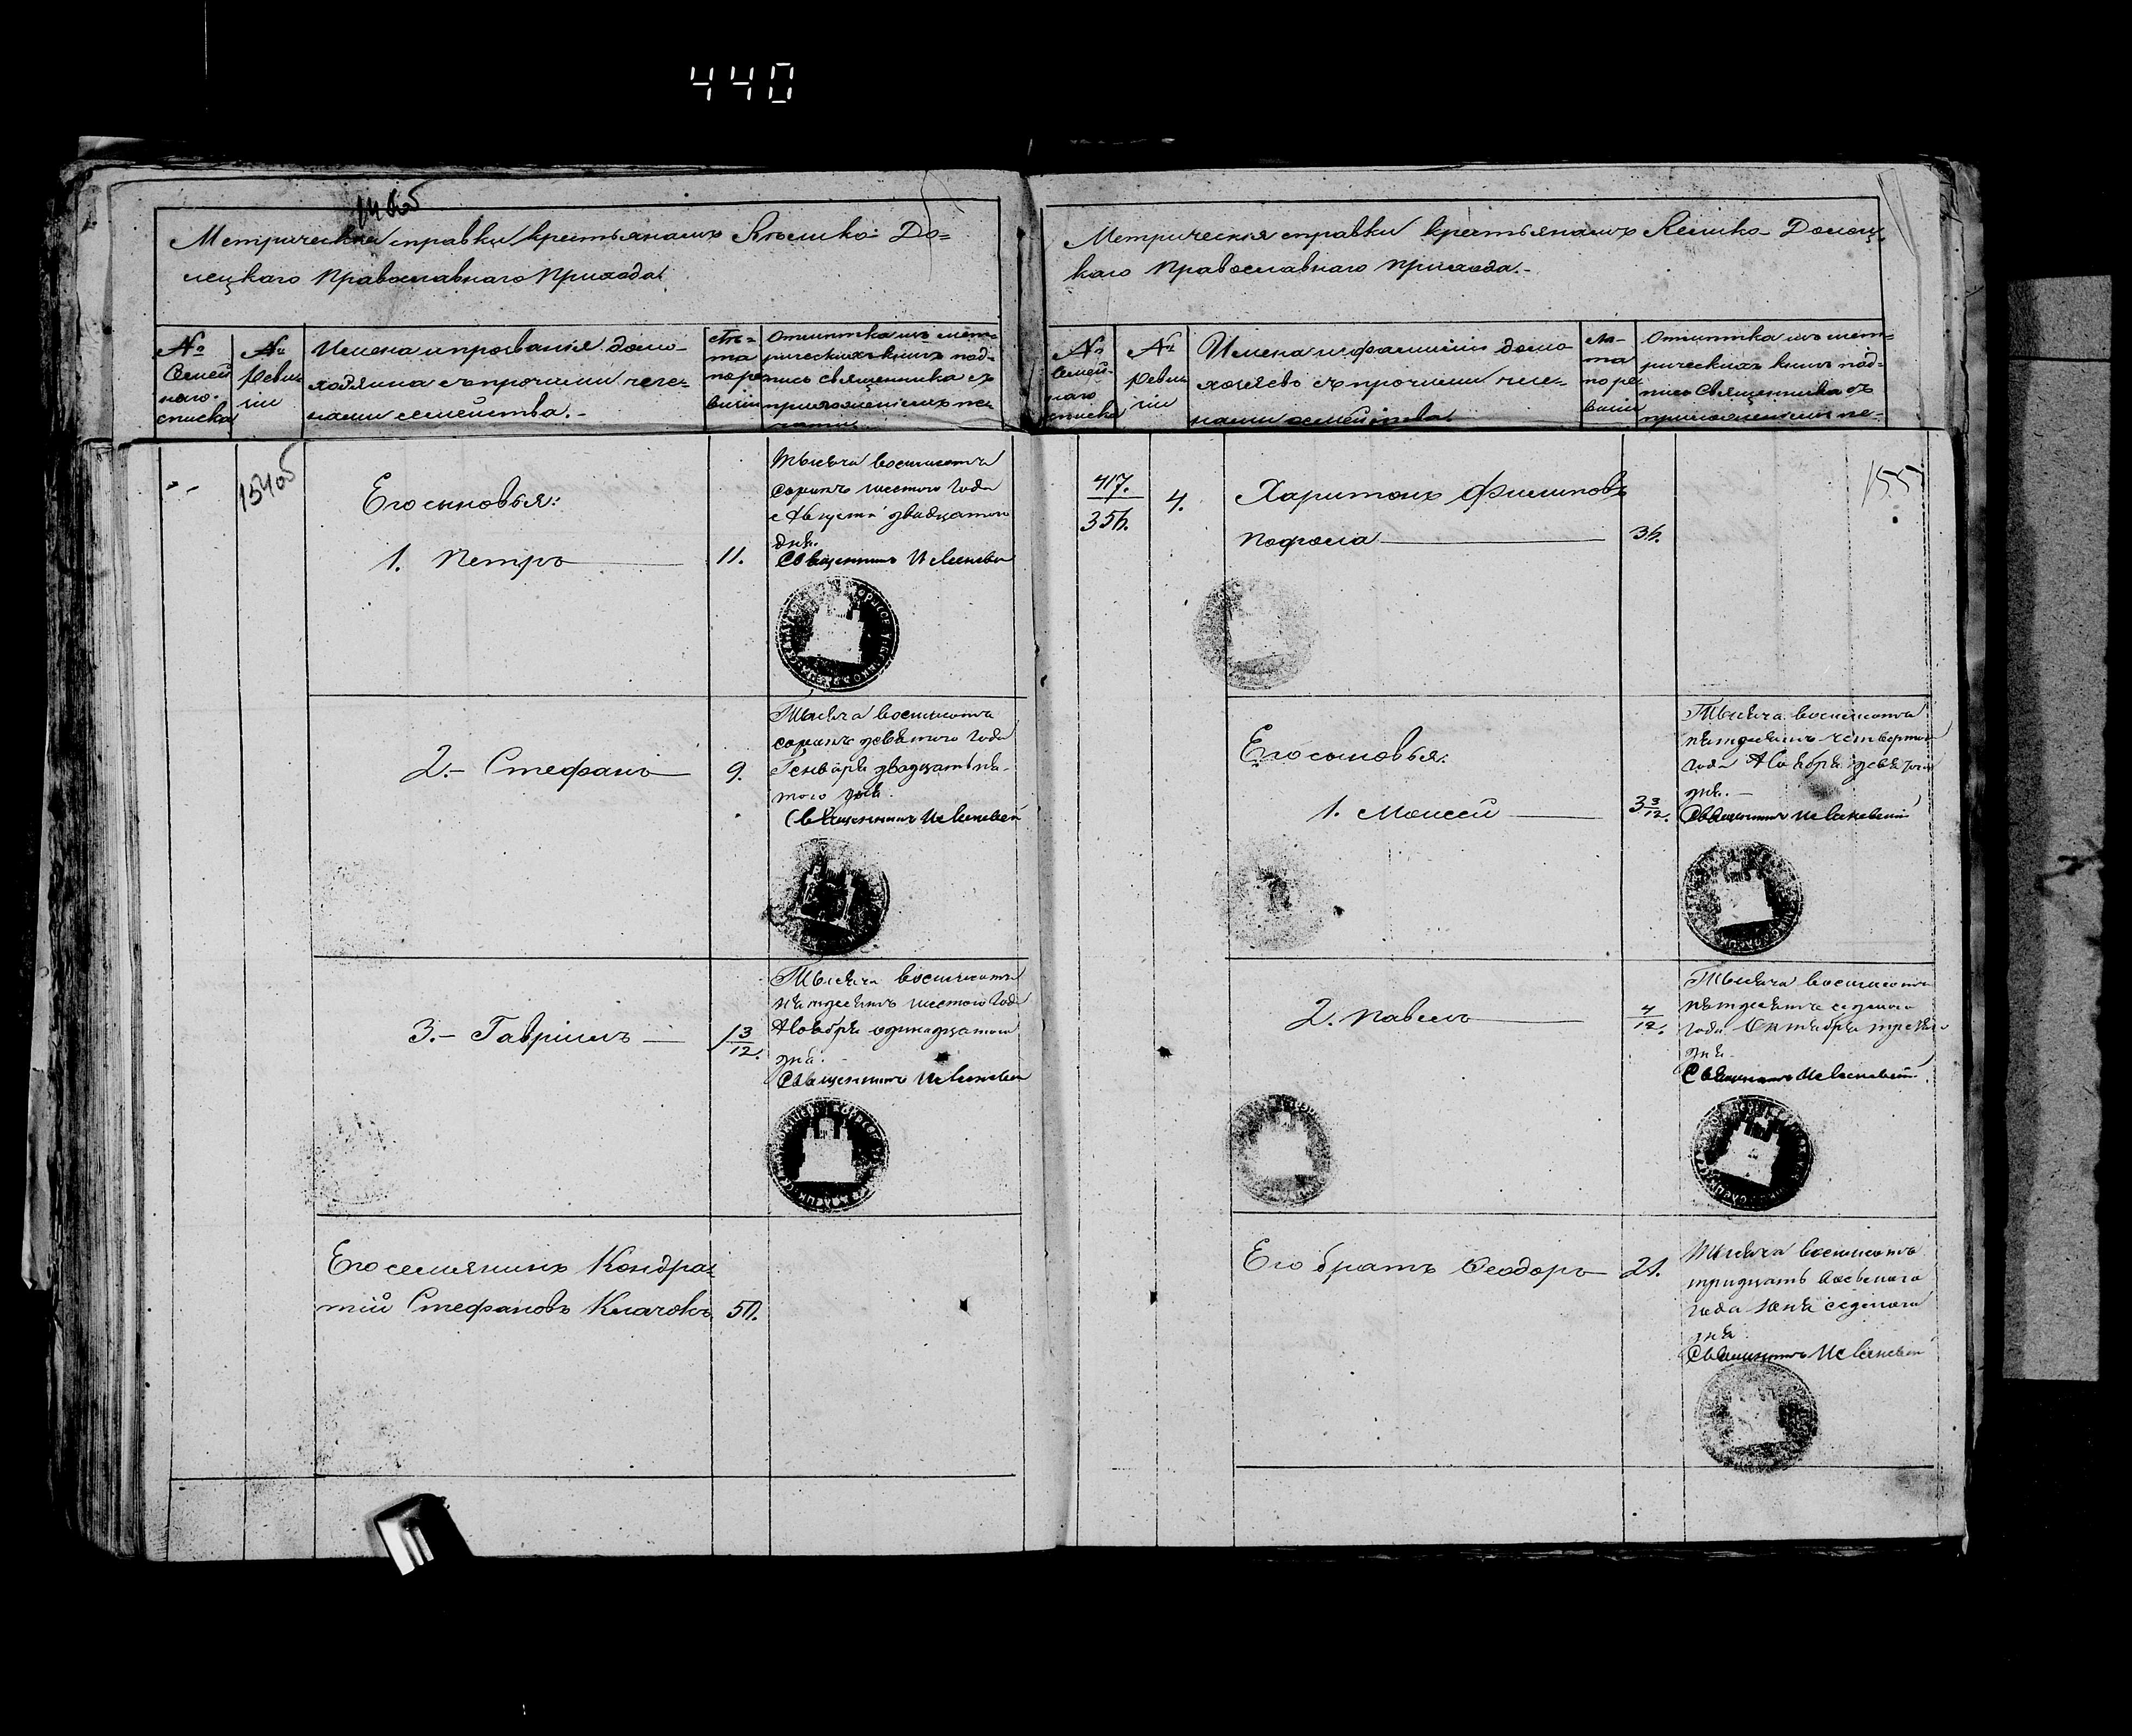 440
Метрическія справки крестьянамъ Велико-До=
лецкаго Православнаго Прихода.
№ Семей наго списка
№ Реви зіи
Имена и прозванія домо-
хозяина съ прочими чле-
нами семейства.-
Лѣ= та по ре визіи
Отмѣтка изъ мет-
рическихъ книгъ под-
пись священника съ
приложеніемъ пе
чати
154об
Его сыновья:
1. Петръ 11.
Тысяча восемьсотъ
сорокъ шестого года
Августа двадцатого
дня.
Священникъ
2.- Стефанъ 9.
Тысяча восемьсотъ
сорокъ девятого года
Генваря двадцать пя-
того дня.
Священникъ
3.- Гавріилъ 1 3/12.
Тысяча восемьсотъ
пятдесятъ шестого года
Ноября одинадцатого
дня.-
Священникъ
Его семянинъ Кондра=
тій Стефановъ Клачокъ 50.
Метрическія справки крестьянамъ Велико-Долец-
каго Православнаго Прихода.-
№ Семей- наго списка
№ Реви зіи
Имена и фамиліи домо
хозяевъ съ прочими чле-
нами семейства
Лѣ- та по ре визіи
Отмѣтка изъ мет-
рическихъ книгъ под-
пись Священника съ
приложеніемъ пе-
155
417. 4. Харитонъ Филиповъ
356.
36.
Его сыновья:
1. Моисей 3 3/12.
Тысяча восемьсотъ
пятдесятъ четвертого
года Ноября девятого
дня.-
Священникъ
2. Павелъ 4/12.
Тысяча восемьсотъ
пятдесятъ седмого
года Октября третяго
дня-
Священникъ
Его братъ Ѳеодоръ 21.
Тысяча восемьсотъ
тридцать восьмого
года седмого
дня
Священникъ